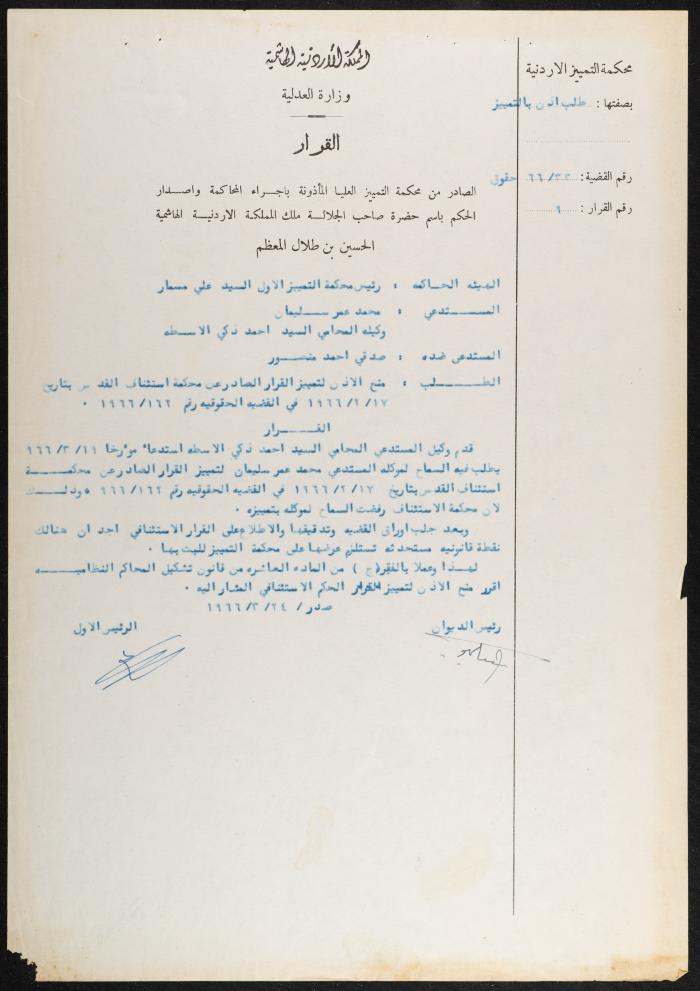 المملكة الأردنية الهاشمية
وزارة العدلية
القرار
محكمة التمييز الاردنية
بصفتها : طلب اذن بالتمييز
رقم القضية : ٦٦/٣٣ حقوق
رقم القرار : ٩
الصادر من محكمة التمييز العليا المأذونة باجراء المحاكمة واصدار
الحكم باسم حضرة صاحب الجلالة ملك المملكة الاردنية الهاشمية
الحسين بن طلال المعظم
الهيئه الحاكمه : رئيس محكمة التمييز الاول السيد علي مسمار
المستدعي : محمد عمر سليمان
وكيله المحامي السيد احمد ذكي الاسطه
المستدعى ضده : صدقي احمد منصور
الطلب : منح الاذن لتمييز القرار الصادر عن محكمة استئناف القدس بتاريخ
١٩٦٦/٢/١٧ في القضيه الحقوقيه رقم ١٩٦٦/١٦٢ .
القرار
قدم وكيل المستدعي المحامي السيد احمد ذكي الاسطه استدعاء مؤرخا ٩٦٦/٣/١٩
يطلب فيه السماح لموكله المستدعي محمد عمر سليمان لتمييز القرار الصادر عن محكمة
استئناف القدس بتاريخ ١٩٦٦/٢/١٧ في القضيه الحقوقيه رقم ٩٦٦/١٦٢ وذلك
لان محكمة الاستئناف رفضت السماح لموكله بتمييزه .
وبعد جلب اوراق القضيه وتدقيقها والاطلاع على القرار الاستئنافي اجد ان هنالك
نقطة قانونيه مستحدثه تستلزم عرضها على محكمة التمييز للبت بها .
لهذا وعملا بالفقره (ج) من الماده العاشره من قانون تشكيل المحاكم النظاميه
اقرر منح الاذن لتمييز القرار الحكم الاستئنافي المشار اليه .
صدر / ١٩٦٦/٣/٢٤
رئيس الديوان
الرئيس الاول